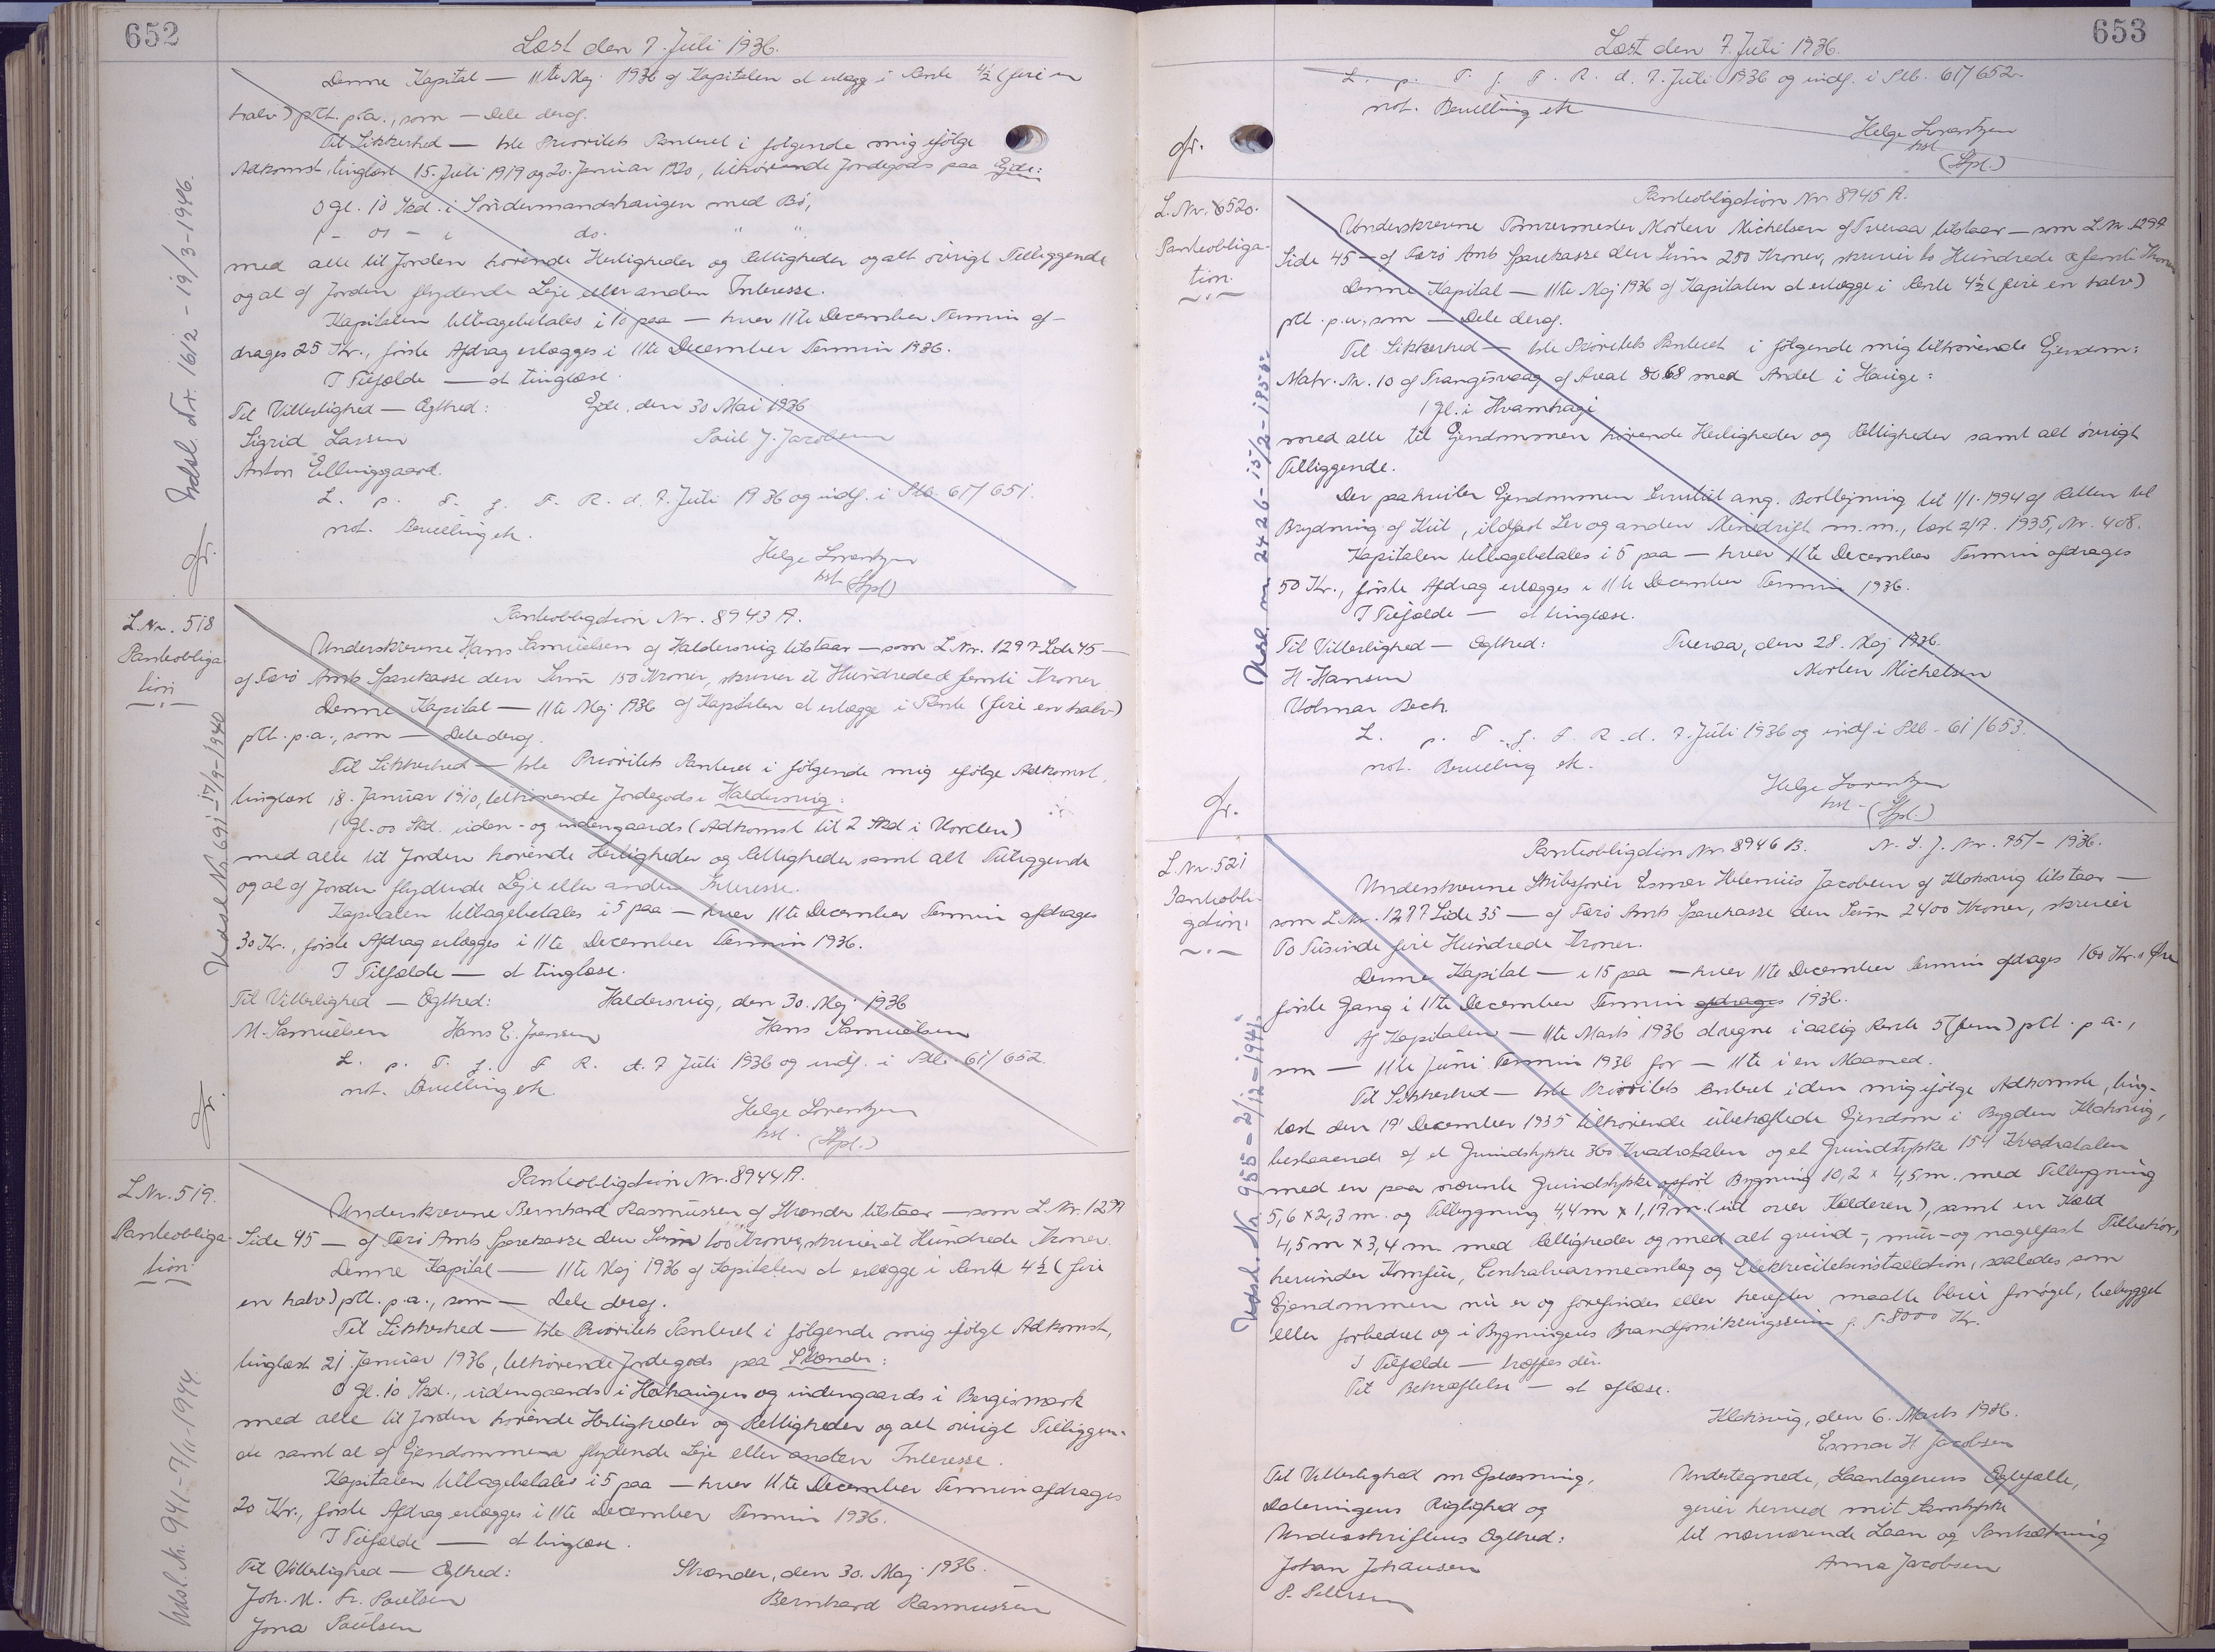 652
Læst den 7. Juli 1936.
Denne Kapital — 11te Maj 1936 af Kapitalen at erlægge i Rente 4½ (firi en
halv) pCt. p.a., som — Dele deraf.
Til Sikkerhed — 1ste Prioritets Panteret i følgende mig ifølge
Adkomst, tinglæst 15. Juli 1919 og 20. Januar 1920, tilhørende Jordegods paa Ejde:
0 gl. 10 Skd. i Søndermandshaugen med Bø,
1 - 00 - i do. " "
med alle til Jorden hørende Herligheder og Rettigheder og alt øvrigt Tilliggende
og al af Jorden flydende Leje eller anden Interesse.
Kapitalen tilbagebetales i 10 paa — hver 11te December Termin af-
drages 25 Kr., første Afdrag erlægges i 11te December Termin 1936.
I Tilfælde — at tinglæse.
Til Vitterlighed — Ægthed: Ejde, den 30 Mai 1936
Sigrid Larsen Poul J. Jacobsen
Anton Ellingsgaard.
L. p. T. f. F. R. d. 7. Juli 1936 og indf. i Plb. 61/651.
not. Bevilling etc.
Helge Lorentzen
kst. (Spl.)
Udsl. Nr. 1612 - 19/3-1946.
Gr.
L. Nr. 518
Panteobliga-
tion
Panteobligation Nr. 8943 A.
Underskrevne Hans Samuelsen af Haldersvig tilstaar — som L. Nr. 1297 Side 45 —
af Færø Amts Sparekasse den Sum 150 Kroner, skriver et Hundrede & femti Kroner
Denne Kapital — 11te Maj 1936 af Kapitalen at erlægge i Rente (firi en halv)
pCt. p.a., som — Dele deraf.
Til Sikkerhed — 1ste Prioritets Panteret i følgende mig ifølge Adkomst,
tinglæst 18. Januar 1910, tilhørende Jordegods i Haldersvig:
1 gl. 00 Skd. uden- og indengaards (Adkomst til 2 Skd i Uorden)
med alle til Jorden hørende Herligheder og Rettigheder samt alt Tilliggende
og al af Jorden flydende Leje eller anden Interesse.
Kapitalen tilbagebetales i 5 paa — hver 11te December Termin afdrages
30 Kr., første Afdrag erlægges i 11te December Termin 1936.
I Tilfælde — at tinglæse.
Til Vitterlighed — Ægthed: Haldersvig, den 30. Maj 1936
M. Samuelsen Hans E. Joensen Hans Samuelsen
L. p. T. f. F. R. d. 7 Juli 1936 og indf. i Plb. 61/652.
not. Bevilling etc
Helge Lorentzen
kst. (Spl.)
Udsl. Nr. 691 - 17/9-1940
Gr.
L. Nr. 519.
Panteobliga-
tion
Panteobligation Nr. 8944 A.
Underskrevne Bernhard Rasmussen af Skænder tilstaar — som L. Nr. 1297
Side 45 — af Færø Amts Sparekasse den Sum 100 Kroner, skriver et Hundrede Kroner
Denne Kapital — 11te Maj 1936 af Kapitalen at erlægge i Rente 4½ (firi
en halv) pCt. p.a., som — Dele deraf.
Til Sikkerhed — 1ste Prioritets Panteret i følgende mig ifølge Adkomst,
tinglæst 21. Januar 1936, tilhørende Jordegods paa Skænder:
0 gl. 10 Skd., udengaards i Høhaugen og indengaards i Bergismørk
med alle til Jorden hørende Herligheder og Rettigheder og alt øvrigt Tilliggen-
de samt al af Ejendommen flydende Leje eller anden Interesse.
Kapitalen tilbagebetales i 5 paa — hver 11te December Termin afdrages
20 Kr., første Afdrag erlægges i 11te December Termin 1936.
I Tilfælde — at tinglæse.
Til Vitterlighed — Ægthed: Skænder, den 30. Maj 1936.
Joh. M. Fr. Poulsen Bernhard Rasmussen
Jona Poulsen
Udsl. Nr. 941 - 7/11-1944
653
Læst den 7. Juli 1936.
L. p. T. f. F. R. d. 7. Juli 1936 og indf. i Plb. 61/652.
not. Bevilling etc
Helge Lorentzen
kst.
(Spl.)
Gr.
L. Nr. 520.
Panteobliga-
tion.
Panteobligation Nr. 8945 A.
Underskrevne Tømrermester Morten Michelsen af Tveraa tilstaar — som L. Nr. 1297
Side 45 — af Færø Amts Sparekasse den Sum 250 Kroner, skriver to Hundrede & femti Kroner
Denne Kapital — 11te Maj 1936 af Kapitalen at erlægge i Rente 4½ (firi en halv)
pCt. p.a., som — Dele deraf.
Til Sikkerhed — 1ste Prioritets Panteret i følgende mig tilhørende Ejendom:
Matr. Nr. 10 af Trangisvaag af Areal 8068 med Andel i Hauge:
1 gl. i Hvamhagi
med alle til Ejendommen hørende Herligheder og Rettigheder samt alt øvrigt
Tilliggende.
Der paahviler Ejendommen Servitut ang. Bortlejning til 1/1-1994 af Retten til
Brydning af Kul, ildfast Ler og anden Minedrift m.m., læst 2/7. 1935, Nr. 408.
Kapitalen tilbagebetales i 5 paa — hver 11te December Termin afdrages
50 Kr., første Afdrag erlægges i 11te December Termin 1936.
I Tilfælde — at tinglæse.
Til Vitterlighed — Ægthed: Tveraa, den 28. Maj 1936.
H. Hansen Morten Michelsen
Volmar Bech.
L. p. T. f. F. R. d. 7. Juli 1936 og indf. i Plb. 61/653.
not. Bevilling etc.
Helge Lorentzen
kst. (Spl.)
Udsl. nr 2426 - 15/2-1955.
Gr.
L. Nr. 521
Panteobli-
gation.
Panteobligation Nr. 8946 B. N. S. J. Nr. 951 - 1936.
Underskrevne Skibsfører Esmar Helenius Jacobsen af Klaksvig tilstaar —
som L. Nr. 1277 Side 35 — af Færø Amts Sparekasse den Sum 2400 Kroner, skriver
To Tusinde fire Hundrede Kroner.
Denne Kapital — i 15 paa — hver 11te December Termin afdrages 160 Kr. " Øre
første Gang i 11te December Termin afdrages 1936.
Af Kapitalen — 11te Marts 1936 at regne i aarlig Rente 5 (fem) pCt. p.a.,
som — 11te Juni Termin 1936 for — 11te i en Maaned.
Til Sikkerhed — 1ste Prioritets Panteret i den mig ifølge Adkomst, ting-
læst den 19 December 1935 tilhørende ubehæftede Ejendom i Bygden Klaksvig,
bestaaende af et Grundstykke 360 Kvadratalen og et Grundstykke 154 Kvadratalen
med en paa nævnte Grundstykke opført Bygning 10,2 x 4,5 m. med Tilbygning
5,6 x 2,3 m. og Tilbygning 4,4 m x 1,17 m. (ud over Kælderen), samt en Kæld
4,5 m x 3,4 m. med Rettigheder og med alt grund-, mur- og nagelfast Tilbehør,
herunder Komfur, Centralvarmeanlæg og Elektricitetsinstallation, saaledes som
Ejendommen nu er og forefindes eller herefter maatte blive forøget, bebygget
eller forbedret og i Bygningens Brandforsikringssum f. T. 8000 Kr.
I Tilfælde — træffes der.
Til Bekræftelse — at aflæse.
Klaksvig, den 6. Marts 1936.
Esmar H Jacobsen
Til Vitterlighed om Oplæsning, Undertegnede, Laantagerens Ægtefælle,
Dateringens Rigtighed og giver herved mit Samtykke
Underskriftens Ægthed: til nærværende Laan og Pantsætning
Johan Johansen Anna Jacobsen
P. Petersen
Udsl. Nr. 955 - 21/12-1941.